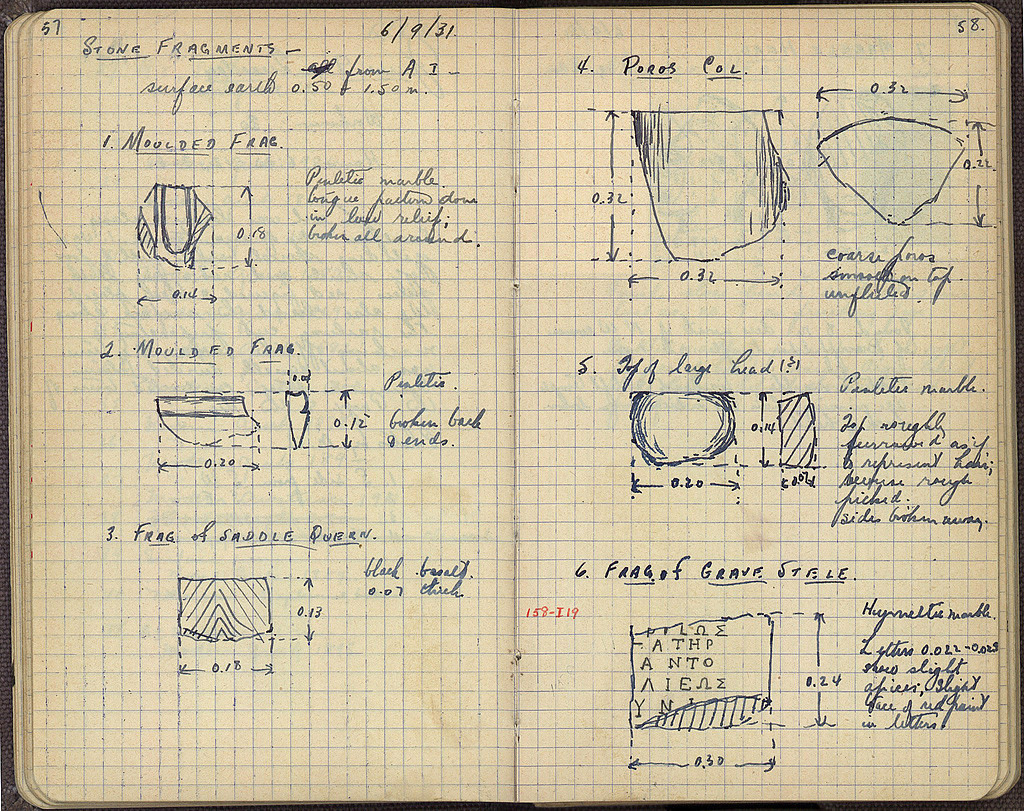 57
6/9/31.
STONE FRAGMENTS —
from A I —
surface earth 0.50 1.50 m.
1. MOULDED FRAG.
Pentelic marble
tongue pattern done
in low relief;
broken all around.
0.18
0.14
2. MOULDED FRAG.
Pentelic.
broken back
& ends.
0.12
0.20
3. FRAG of SADDLE QUERN.
black basalt.
0.07 thick
0.13
0.18
58.
4. POROS COL.
0.32
0.32
0.32
0.22
coarse poros
smooth on top
unfluted.
5. Top of large head
Pentelic marble.
Top roughly
furrowed as if
to represent hair;
reverse rough
picked.
sides broken away.
0.14
0.20
0.07
6. FRAG of GRAVE STELE.
158-I19
Hymettic marble.
Letters 0.022-0.023
show slight
apices; slight
trace of red paint
in letters.
ΩΣ
ΑΤΗΡ
Α ΝΤΟ
ΛΙΕΩΣ
Υ Ν
0.24
0.30